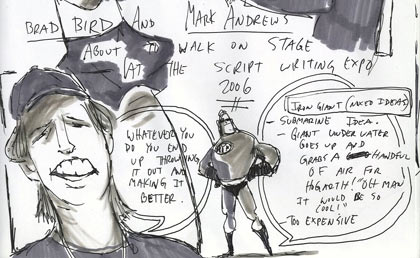 BRAD BIRD AND MARK ANDREWS
ABOUT TO WALK ON STAGE
AT THE SCRIPT WRITING EXPO
2006
WHATEVER YOU
DO YOU END
UP THROWING
IT OUT AND
MAKING IT
BETTER.
IRON GIANT (NIXED IDEAS)
- SUBMARINE IDEA.
- GIANT UNDER WATER
GOES UP AND
GRABS A HANDFUL
OF AIR FOR
HOGARTH! "OH MAN
IT WOULD BE SO
COOL!"
- TOO EXPENSIVE